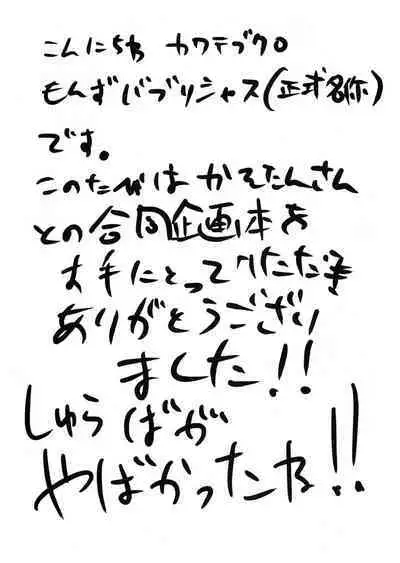 こんにちわ カワテブクロ
もんずパブリシャス(正式名称)
です。
このたびは かえたんさん
との合同企画本お
お手にとって いただき
ありがとうござい
ました!!
しゅらばが
やばかったね!!